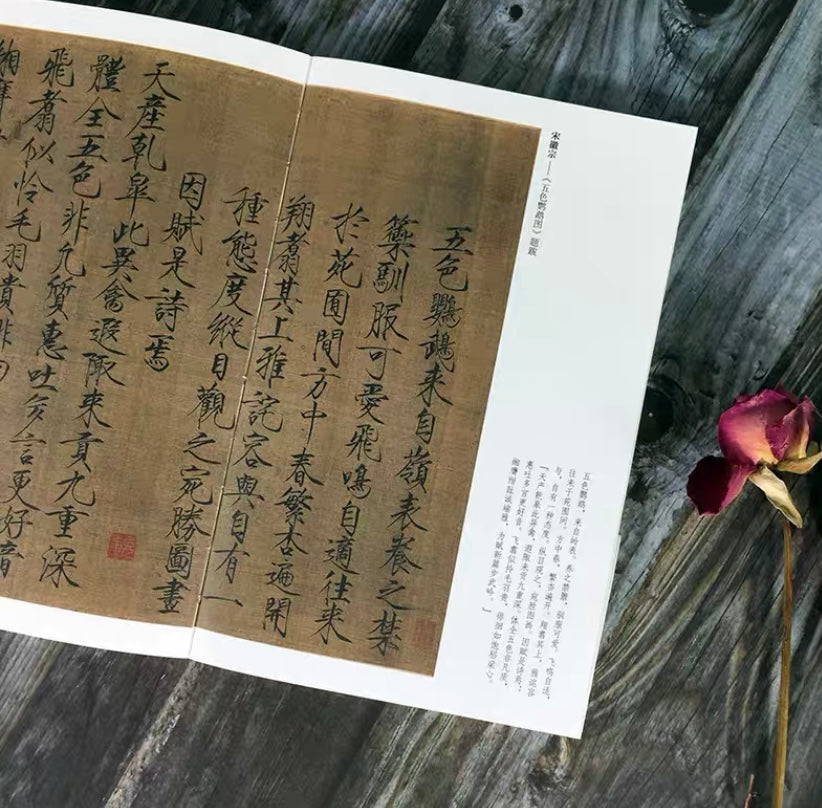 宋徽宗——《五色鹦鹉图》题跋
五色鸚鵡来自嶺表養之禁
籞馴服可愛飛鳴自適往来
於苑囿間方中春繁杏遍開
翔翥其上雅詫容與自有一
種態度縱目觀之宛勝圖畫
因賦是詩焉
天産乾皐此異禽遐陬来貢九重深
體全五色非凡質惠吐多言更好音
飛翥似怜毛羽貴徘
五色鹦鹉，来自岭表。养之禁籞，驯服可爱。飞鸣自适，
往来于苑囿间。方中春，繁杏遍开，翔翥其上，雅诧容
与，自有一种态度。纵目观之，宛胜图画。因赋是诗焉：
「天产乾皋此异禽，遐陬来贡九重深。体全五色非凡质，
惠吐多言更好音。飞翥似怜毛羽贵，徘徊如饱稻粱心。
缃膺绀趾诚端雅，为赋新篇步武吟。」